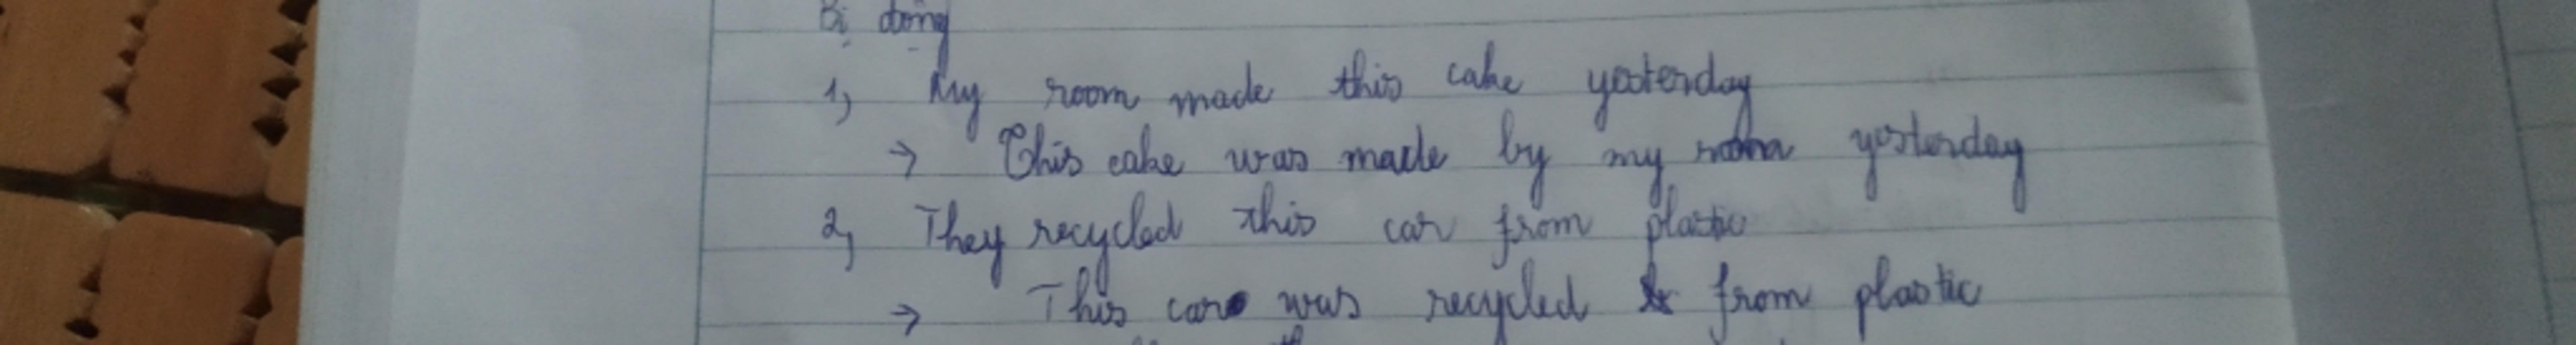 Bị động
1, My room made this cake yesterday
→ This cake was made by my room yesterday
2, They recycled this car from plastic
→ This car was recycled from plastic